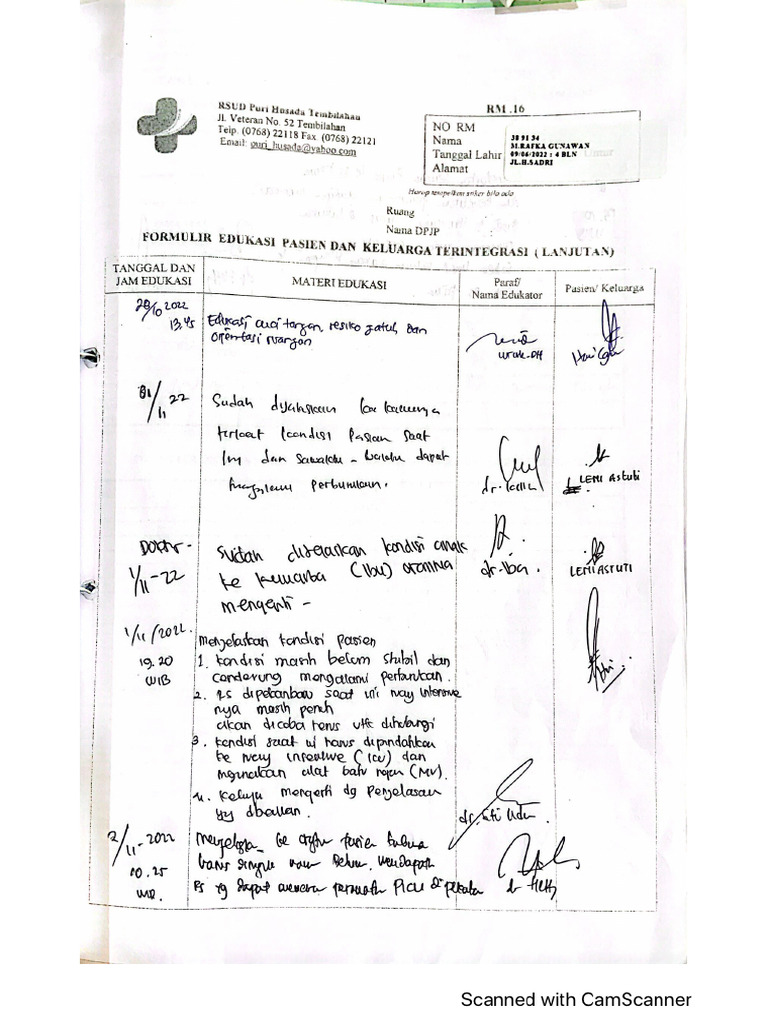 RSUD Puri Husada Tembilahan
Jl. Veteran No. 52 Tembilahan
Telp. (0768) 22118 Fax. (0768) 22121
Email: puri_husada@yahoo.com
RM .16
NO RM 38 91 34
Nama M.RAFKA GUNAWAN
Tanggal Lahir 09/06/2022 : 4 BLN
Alamat JL.H.SADRI
Harap tempelkan stiker bila ada
Ruang :
Nama DPJP :
FORMULIR EDUKASI PASIEN DAN KELUARGA TERINTEGRASI ( LANJUTAN)
TANGGAL DAN JAM EDUKASI
MATERI EDUKASI
Paraf/ Nama Edukator
Pasien/ Keluarga
28/10 2022
13.45
Edukasi cuci tangan, resiko jatuh dan
orientasi ruangan
01/11 22
Sudah dijelaskan ke keluarga
terkait kondisi pasien saat
ini dan sewaktu - waktu dapat
perburukan.
LENI ASTUTI
Dokter -
1/11-22
Sudah dijelaskan kondisi anak
ke keluarga (Ibu) orangtua
mengerti -
LENI ASTUTI
1/11/2022.
19.20
WIB
Menjelaskan kondisi pasien
1. Kondisi masih belum stabil dan
cenderung mengalami perburukan.
2. RS dipekanbaru saat ini ruang intensive
nya masih penuh
akan dicoba terus utk dihubungi
3. Kondisi saat ini harus dipindahkan
ke ruang intensive (ICU) dan
mgunakan alat batu napas (MV).
4. Keluarga mengerti dg penjelasan
yg diberikan.
2/11-2022
10.25
ke pasien bahwa
Rs yg dapat PICU di
Scanned with CamScanner